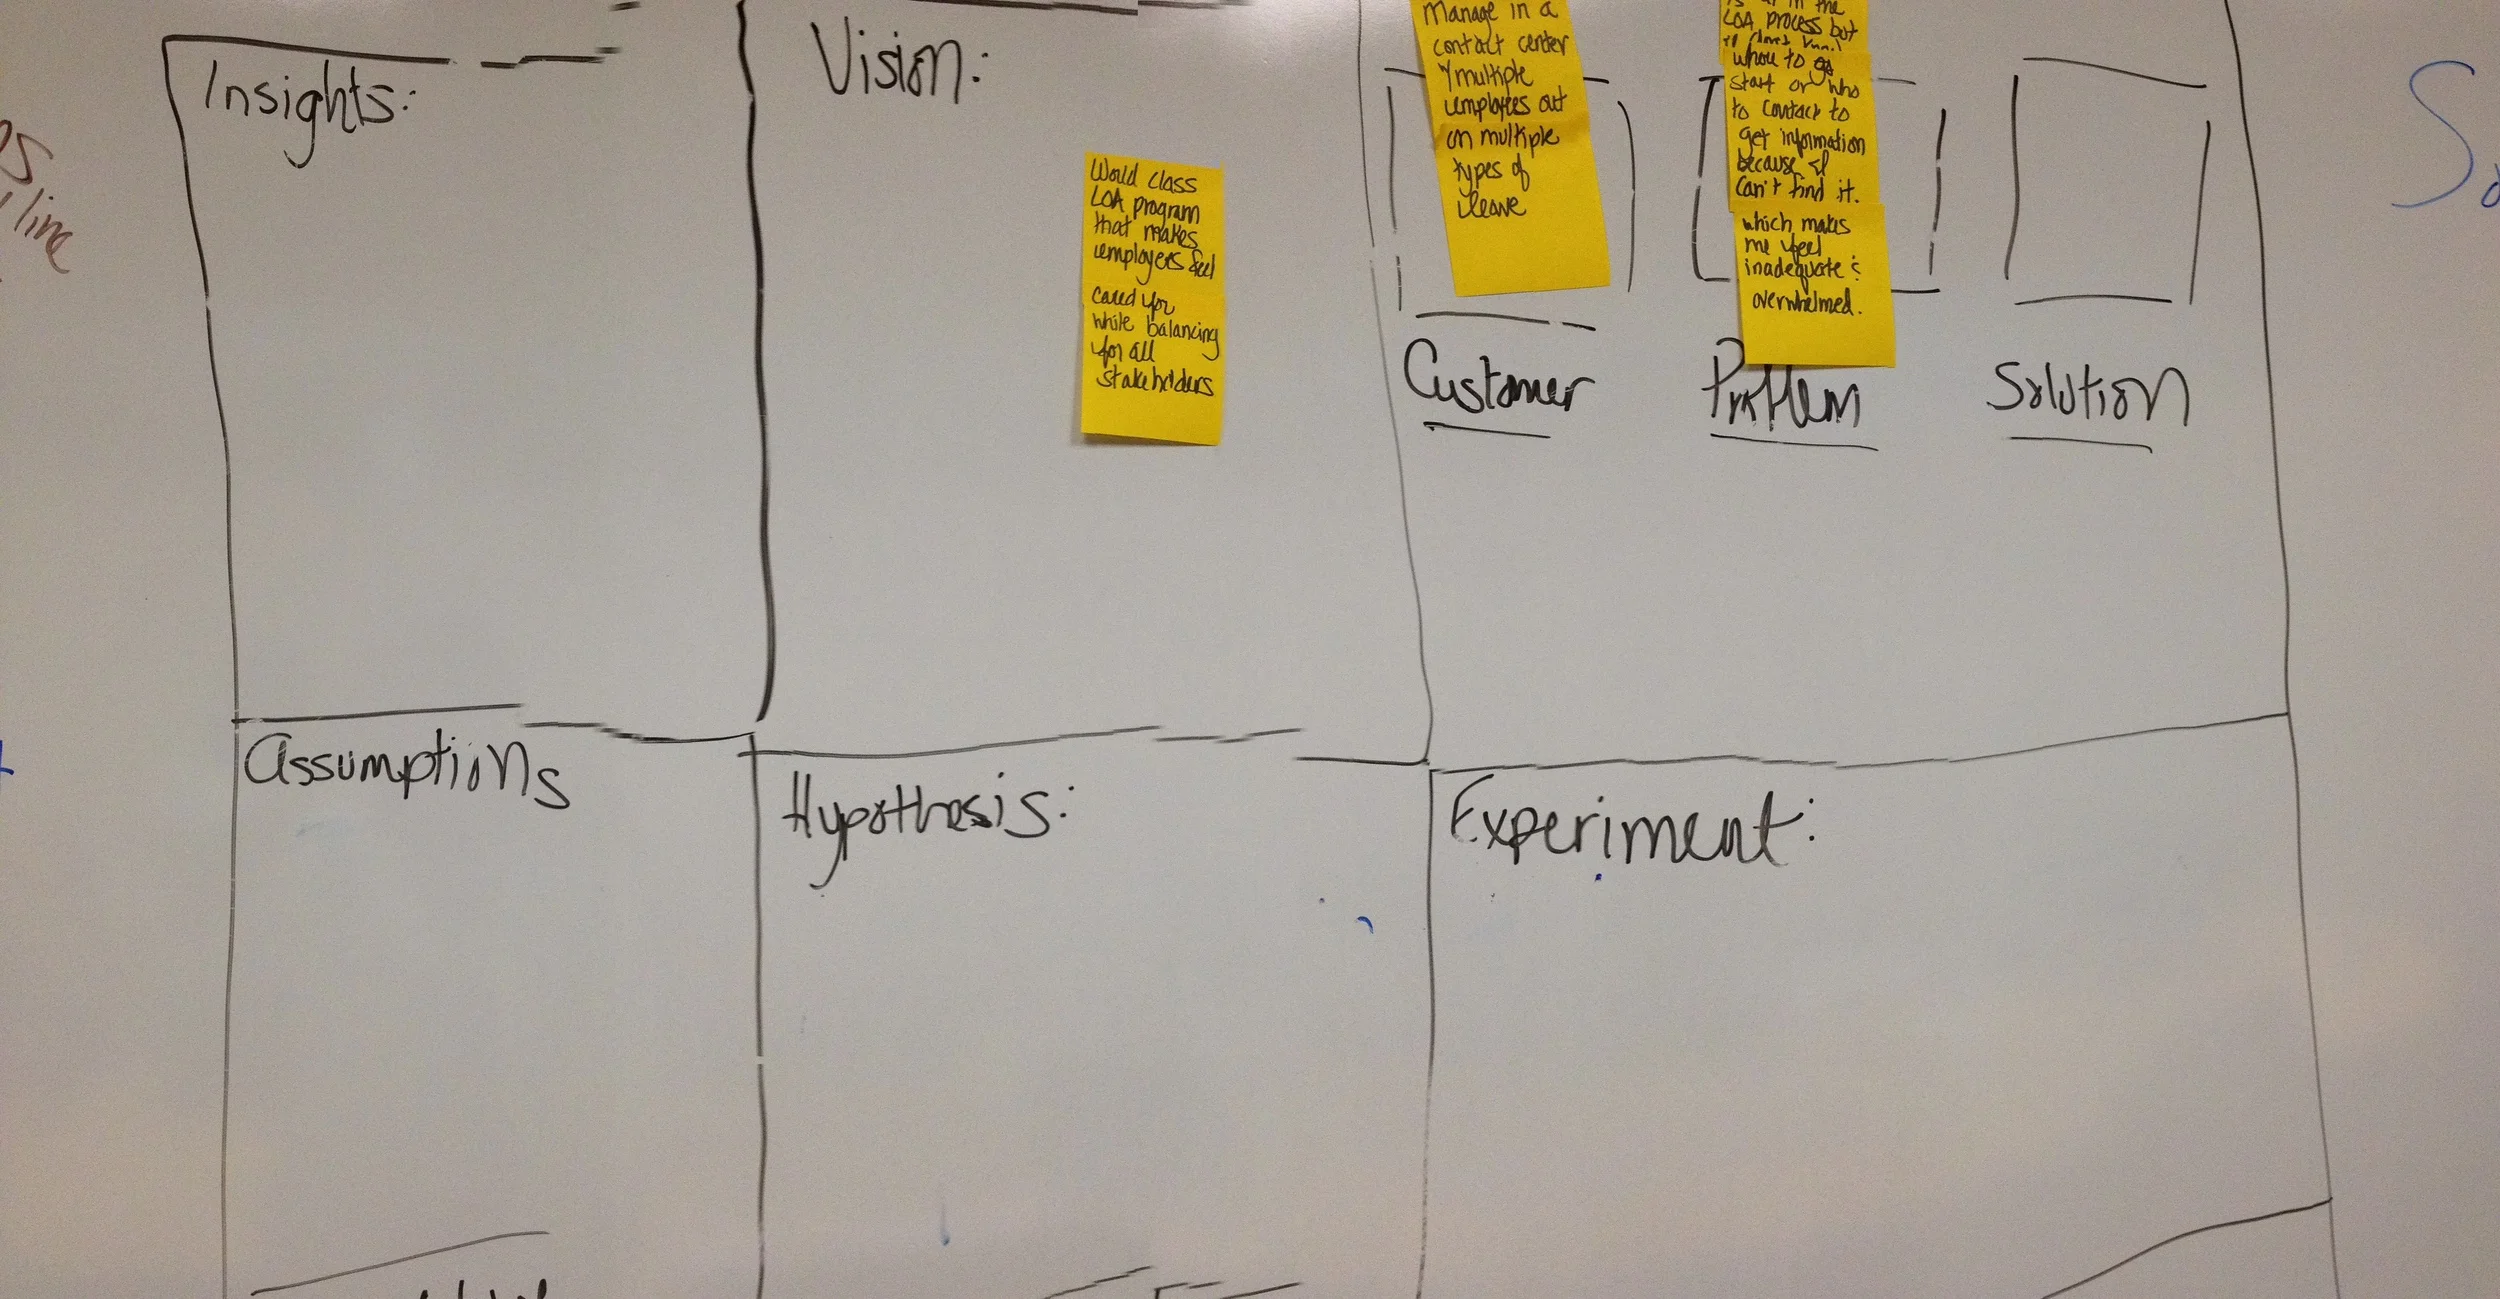 Insights:
Vision:
World class
LOA program
that makes
employees feel
cared for
while balancing
for all
stakeholders
Manage in a
contact center
multiple
employees out
on multiple
types of
leave
Customer
in the
LOA process but
where to go
start or who
to contact to
get information
because I
can't find it.
which makes
me feel
inadequate &
overwhelmed.
Problem
Solution
line
Assumptions
Hypothesis:
Experiment: